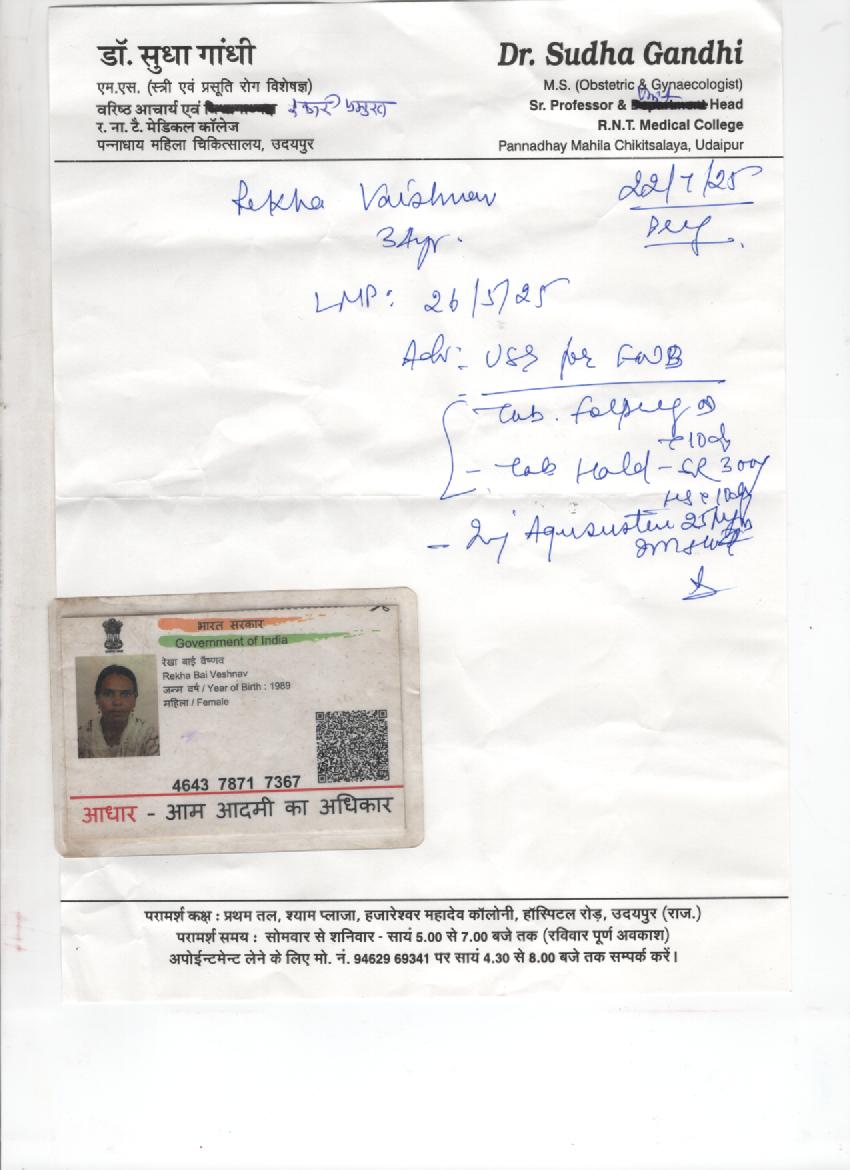 डॉ. सुधा गांधी
एम.एस. (स्त्री एवं प्रसूति रोग विशेषज्ञ)
वरिष्ठ आचार्य एवं
र. ना. टै. मेडिकल कॉलेज
पन्नाधाय महिला चिकित्सालय, उदयपुर
Dr. Sudha Gandhi
M.S. (Obstetric & Gynaecologist)
Sr. Professor & Unit Head
R.N.T. Medical College
Pannadhay Mahila Chikitsalaya, Udaipur
Rekha Vaishnav
22/7/25
34yr.
LMP: 26/5/25
Adv: USG for FWB
Tab.
- Tab Hald - SR 300
- Inj 25
भारत सरकार
Government of India
रेखा बाई वैष्णव
Rekha Bai Veshnav
जन्म वर्ष / Year of Birth : 1989
महिला / Female
4643 7871 7367
आधार - आम आदमी का अधिकार
परामर्श कक्ष : प्रथम तल, श्याम प्लाजा, हजारेश्वर महादेव कॉलोनी, हॉस्पिटल रोड़, उदयपुर (राज.)
परामर्श समय : सोमवार से शनिवार - सायं 5.00 से 7.00 बजे तक (रविवार पूर्ण अवकाश)
अपोईन्टमेन्ट लेने के लिए मो. नं. 94629 69341 पर सायं 4.30 से 8.00 बजे तक सम्पर्क करें।